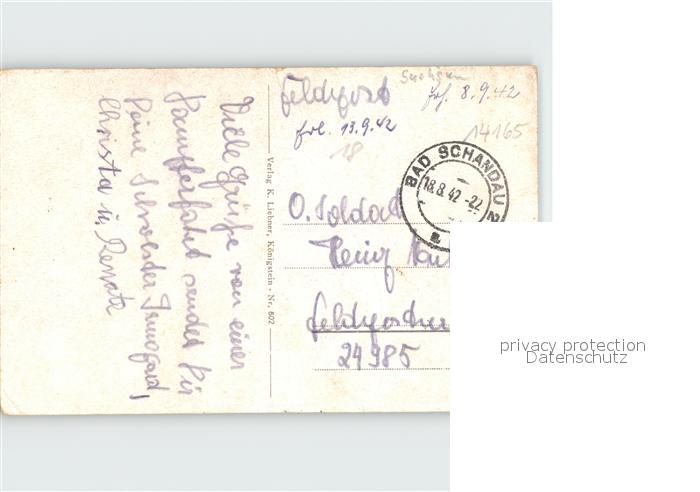 Viele Grüße von einer
Dampferfahrt sendet Dir
Deine Schwester Irmgard,
Christa u. Renate
Verlag K. Liebner, Königstein - Nr. 802
Feldpost
Sachsen
erh. 8.9.42
erl. 13.9.42
18
14165
BAD SCHANDAU 2
18.8.42-22
a
O. Soldat
Heinz
Feldpostnu
24985
privacy protection
Datenschutz